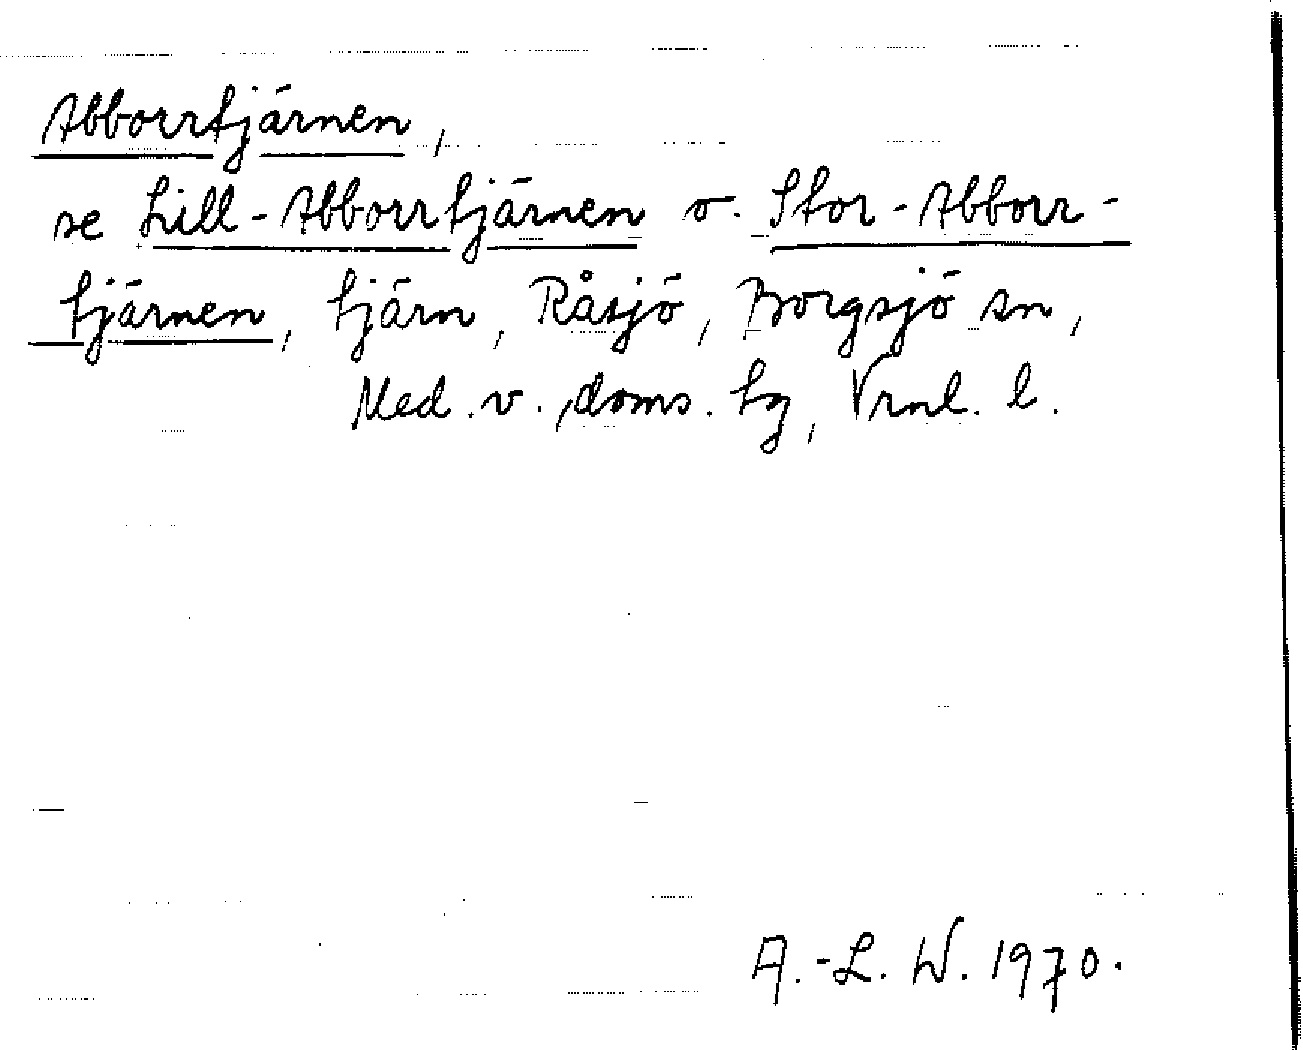 Abborrtjärnen,
se Lill-Abborrtjärnen o. Stor-Abborr-
tjärnen, tjärn, Råsjö, Borgsjö sn,
Med. v. doms. tg, Vrnl. l.
A.-L. W. 1970.